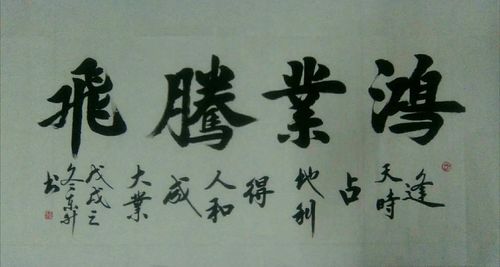 鴻業騰飛
逢
天時
占
地利
得
人和
成
大業
戊戌之
冬東升
书